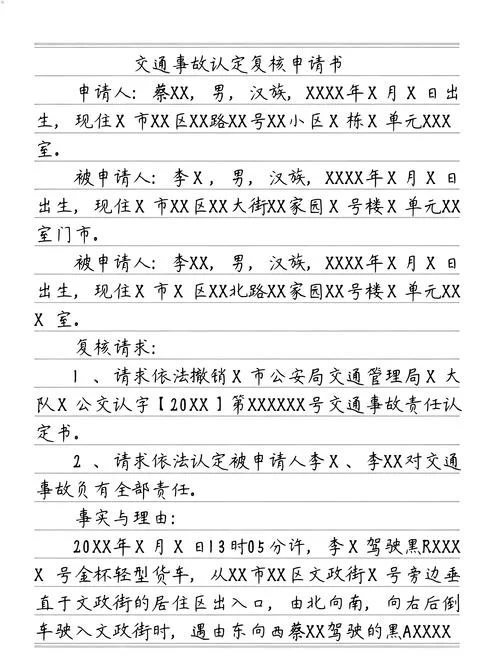 交通事故认定复核申请书
申请人：蔡XX，男，汉族，XXXX年X月X日出
生，现住X市XX区XX路XX号XX小区X栋X单元XXX
室。
被申请人：李X，男，汉族，XXXX年X月X日
出生，现住X市XX区XX大街XX家园X号楼X单元XX
室门市。
被申请人：李XX，男，汉族，XXXX年X月X日
出生，现住X市X区XX北路XX家园XX号楼X单元XX
X室。
复核请求：
1、请求依法撤销X市公安局交通管理局X大
队X公交认字【20XX】第XXXXXX号交通事故责任认
定书。
2、请求依法认定被申请人李X、李XX对交通
事故负有全部责任。
事实与理由：
20XX年X月X日13时05分许，李X驾驶黑RXXX
X号金杯轻型货车，从XX市XX区文政街X号旁边垂
直于文政街的居住区出入口，由北向南，向右后倒
车驶入文政街时，遇由东向西蔡XX驾驶的黑AXXXX